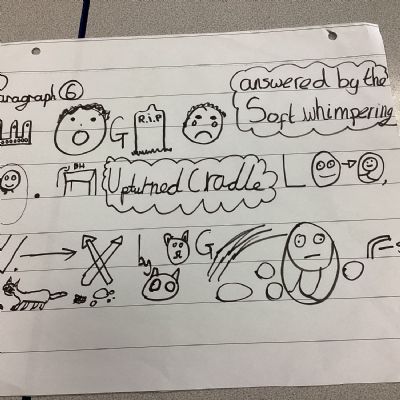 answered by the
aragraph ⑥
Soft whimpering
G R.i.P
BH
Upturned Cradle L
by G